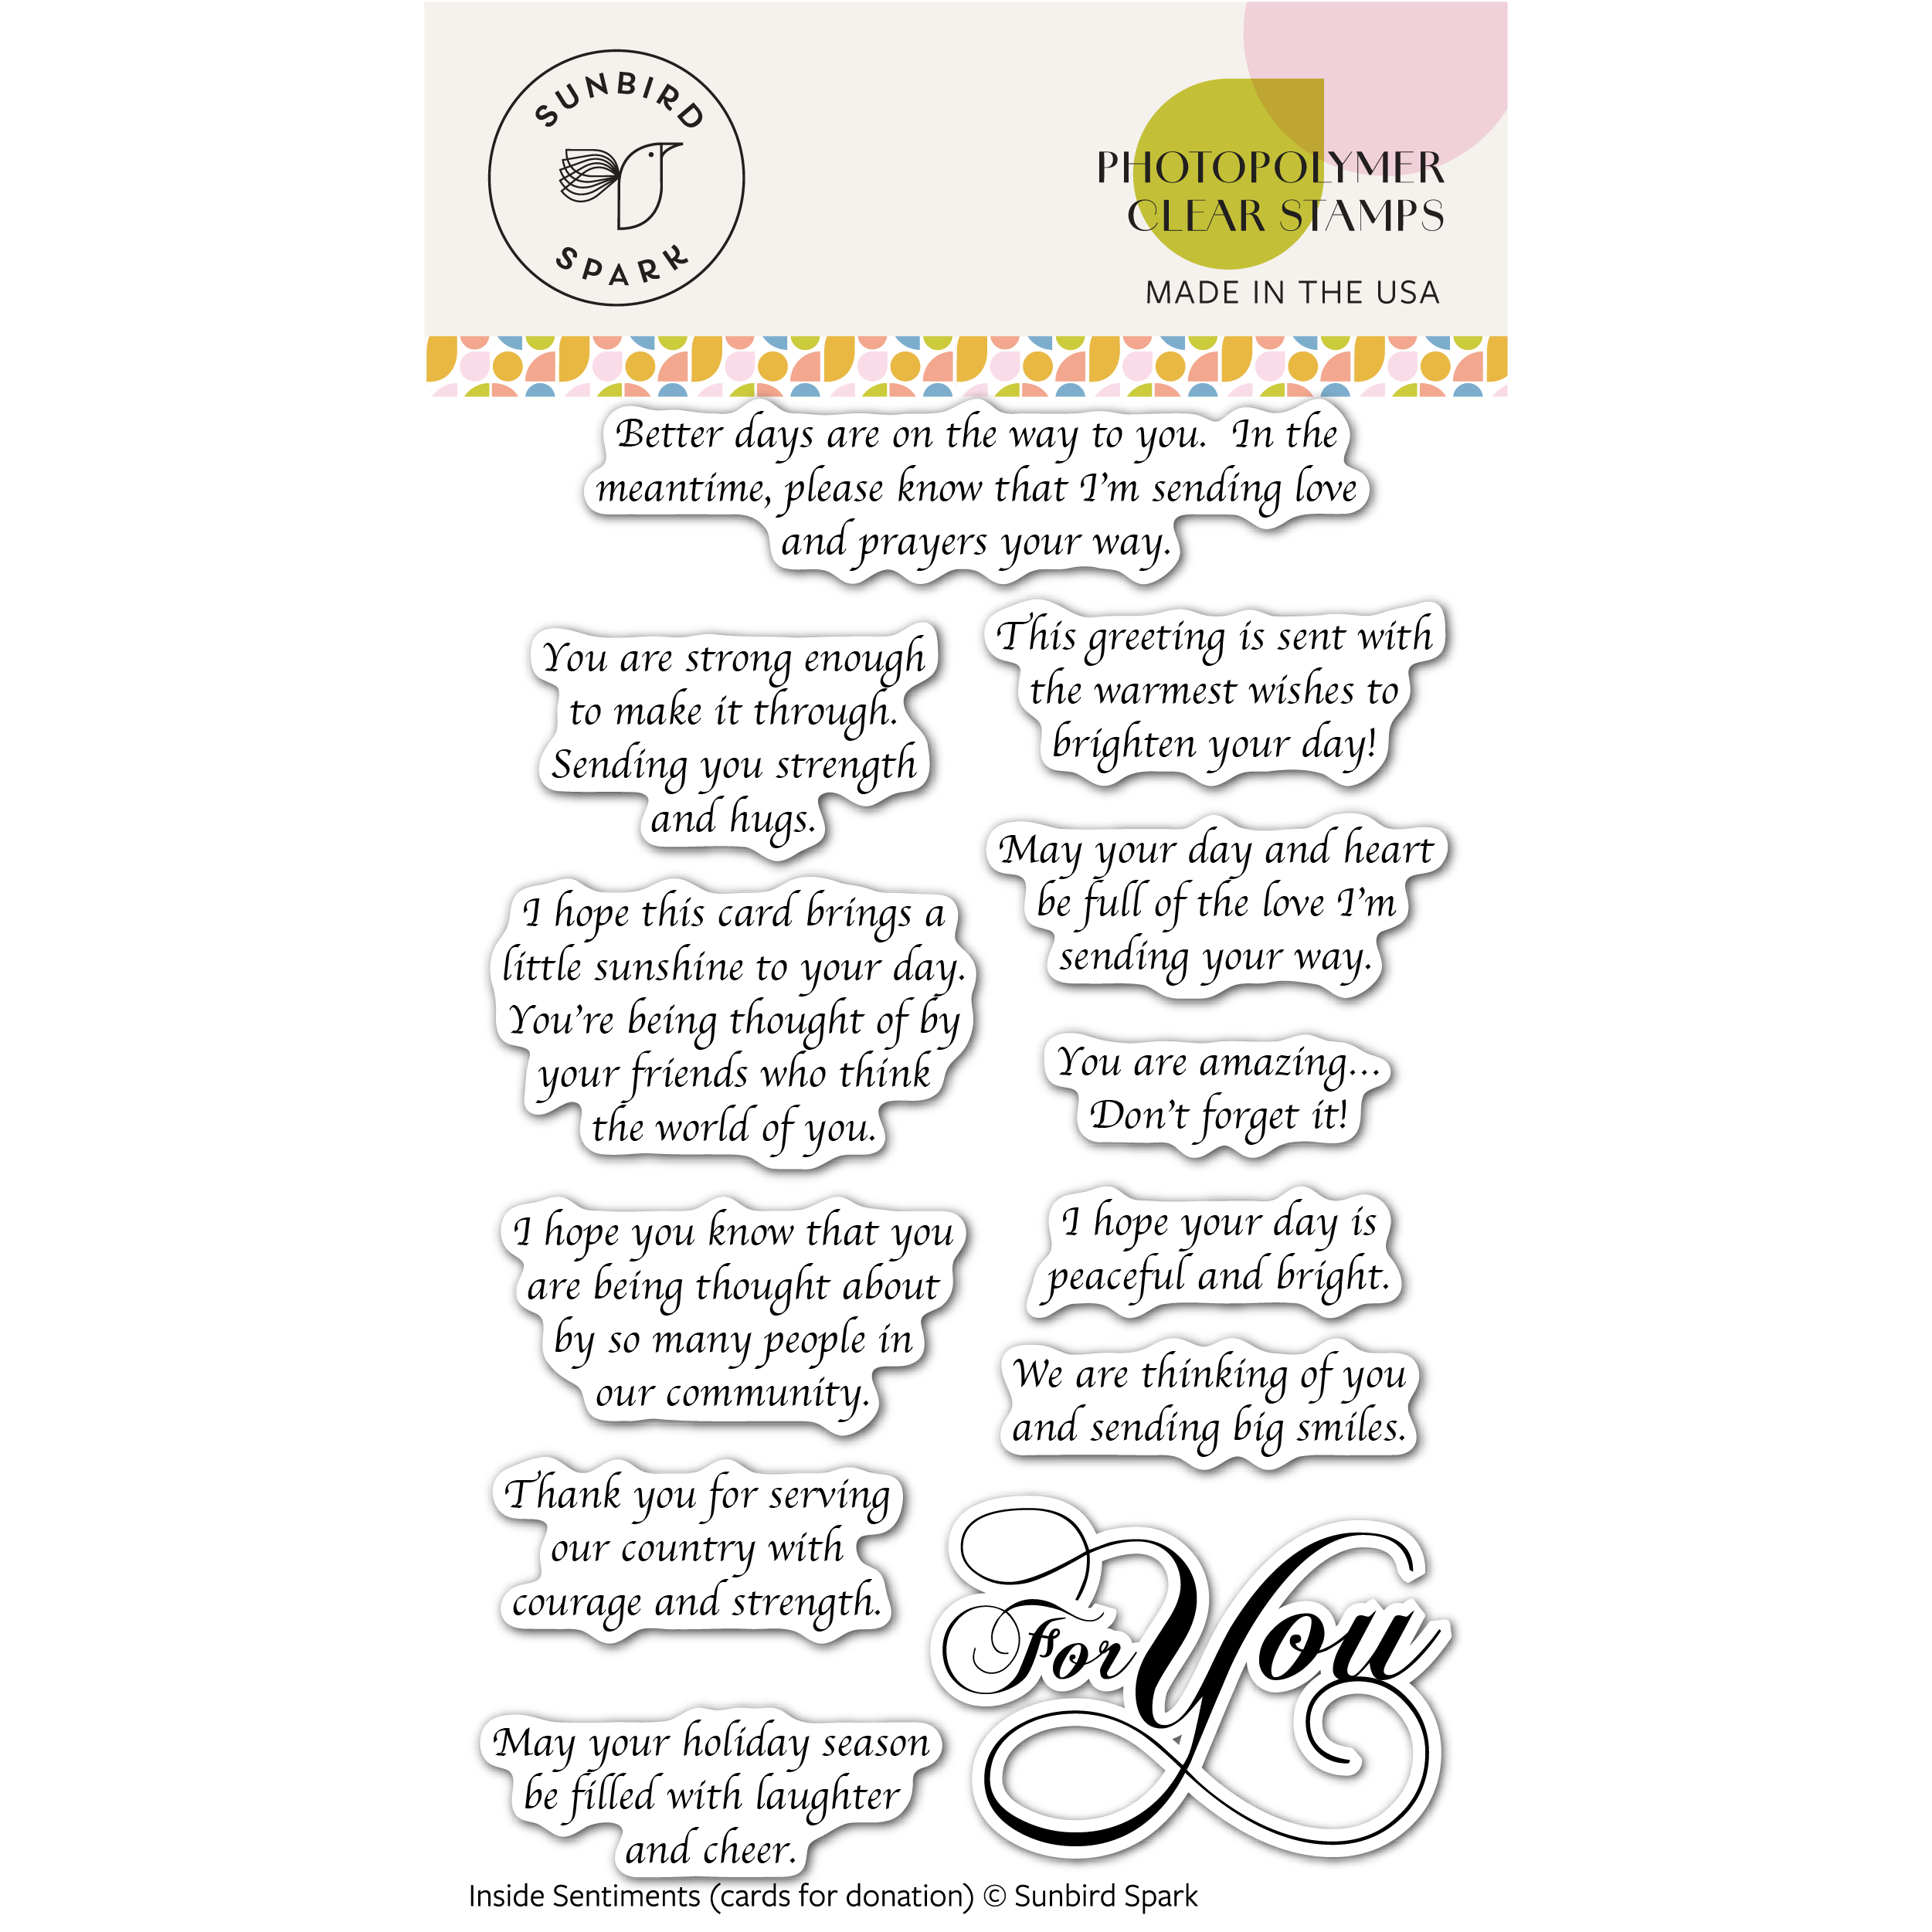 SUNBIRD
SPARK
PHOTOPOLYMER
CLEAR STAMPS
MADE IN THE USA
Better days are on the way to you.  In the
meantime, please know that I'm sending love
and prayers your way.
You are strong enough
to make it through.
Sending you strength
and hugs.
This greeting is sent with
the warmest wishes to
brighten your day!
May your day and heart
be full of the love I'm
sending your way.
I hope this card brings a
little sunshine to your day.
You're being thought of by
your friends who think
the world of you.
You are amazing...
Don't forget it!
I hope you know that you
are being thought about
by so many people in
our community.
I hope your day is
peaceful and bright.
We are thinking of you
and sending big smiles.
Thank you for serving
our country with
courage and strength.
For You
May your holiday season
be filled with laughter
and cheer.
Inside Sentiments (cards for donation) © Sunbird Spark